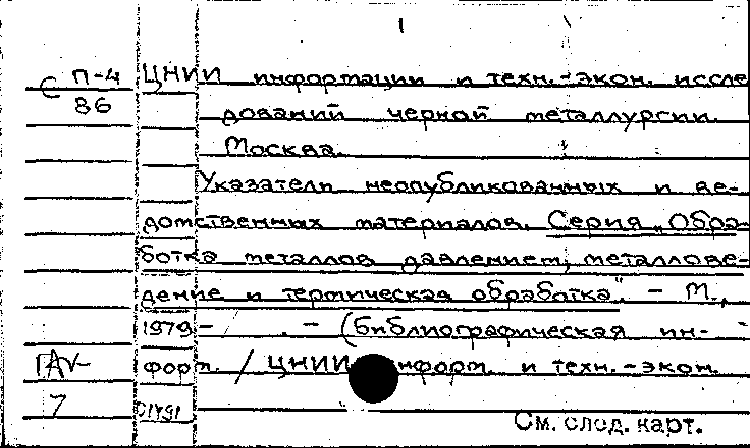 1
С П-4 ЦНИИ информации и техн.-экон. иссле-
86 дований черной металлургии.
Москва.
Указатели неопубликованных и ве-
домственных материалов. Серия „Обра-
ботка металлов давлением, металлове-
дение и термическая обработка". - М.,
1979- . - (Библиографическая ин-
форм. / ЦНИИ информ. и техн.-экон.
7
См. след. карт.